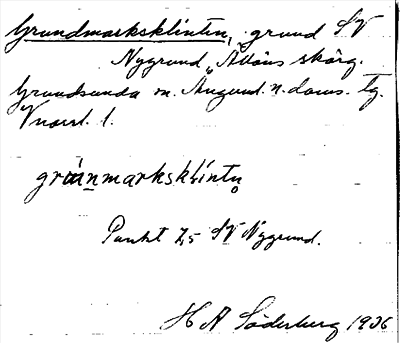 Grundmarksklinten, grund SV
Nygrund, Ållöns skärg.
Grundsunda sn. Ångerml. n. doms. Tg.
V norrl. l.
grunmarksklintn
Punkt 7,5 SV Nygrund.
H A Söderberg 1936